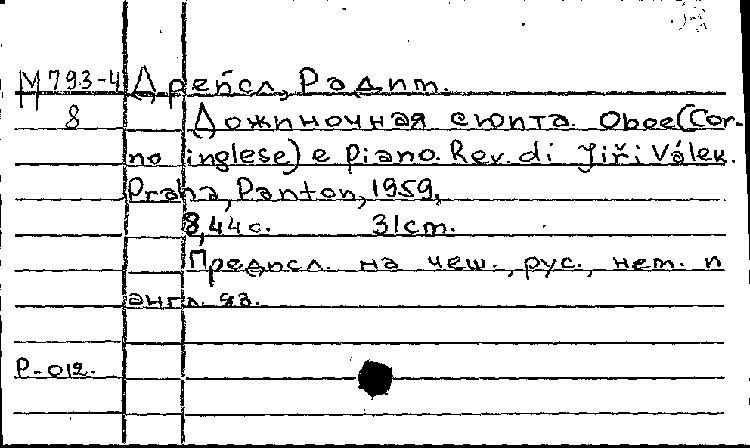 М793-4 Дрейсл, Радим.
8 Дожиночная сюита. Oboe (Cor-
no inglese) e piano. Rev. di Jiři Válek.
Praha, Panton, 1959,
8,44 с. 31 cm.
Предисл. на чеш., рус., нем. и
англ. яз.
Р-012.